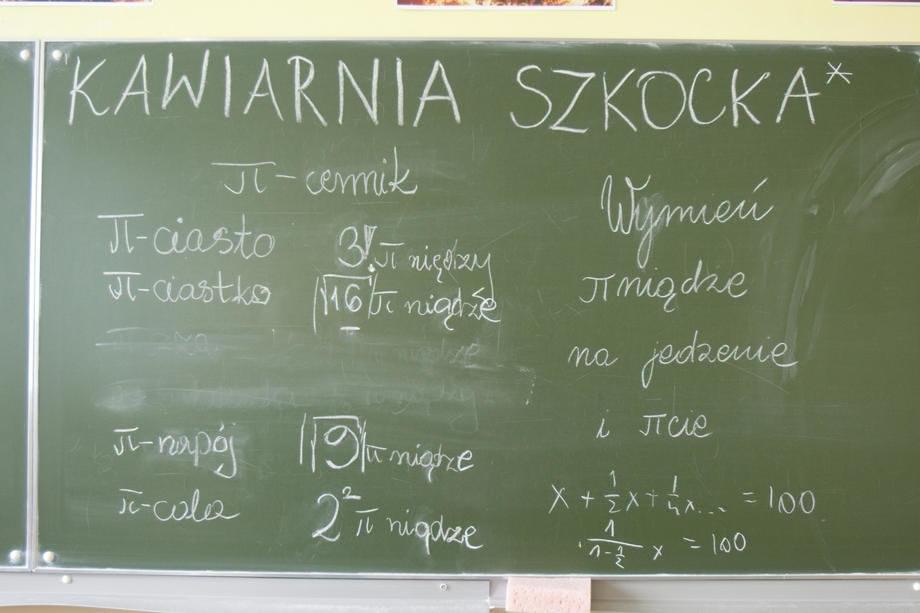 KAWIARNIA SZKOCKA*
π-cennik
π-ciasto 3! π niędzy
π-ciastko |√16| π niądze
π-napój |√9| π niądze
π-cola 2² π niądze
Wymień
πniądze
na jedzenie
i πcie
x + 1/2 x + 1/4 x... = 100
1/(1-1/2) x = 100